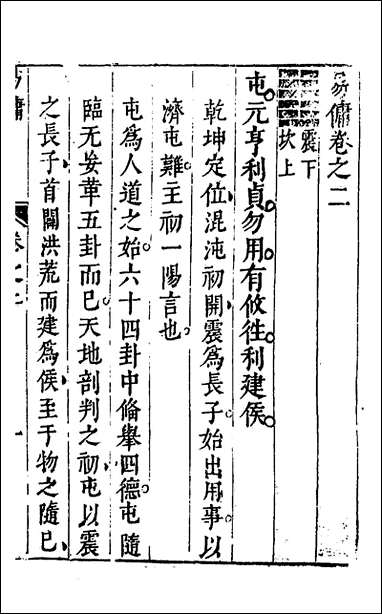 易傭卷之二
震下
坎上
屯。元亨利貞。勿用。有攸往。利建侯。
乾坤定位混沌初開震爲長子始出用事。以
濟屯難。主初一陽言也。
屯爲人道之始。六十四卦中俻舉四德。屯隨
臨无妄革五卦而已。天地剖判之初屯以震
之長子首闢洪荒而建爲侯。至于物之隨已
易傭
卷之二
一